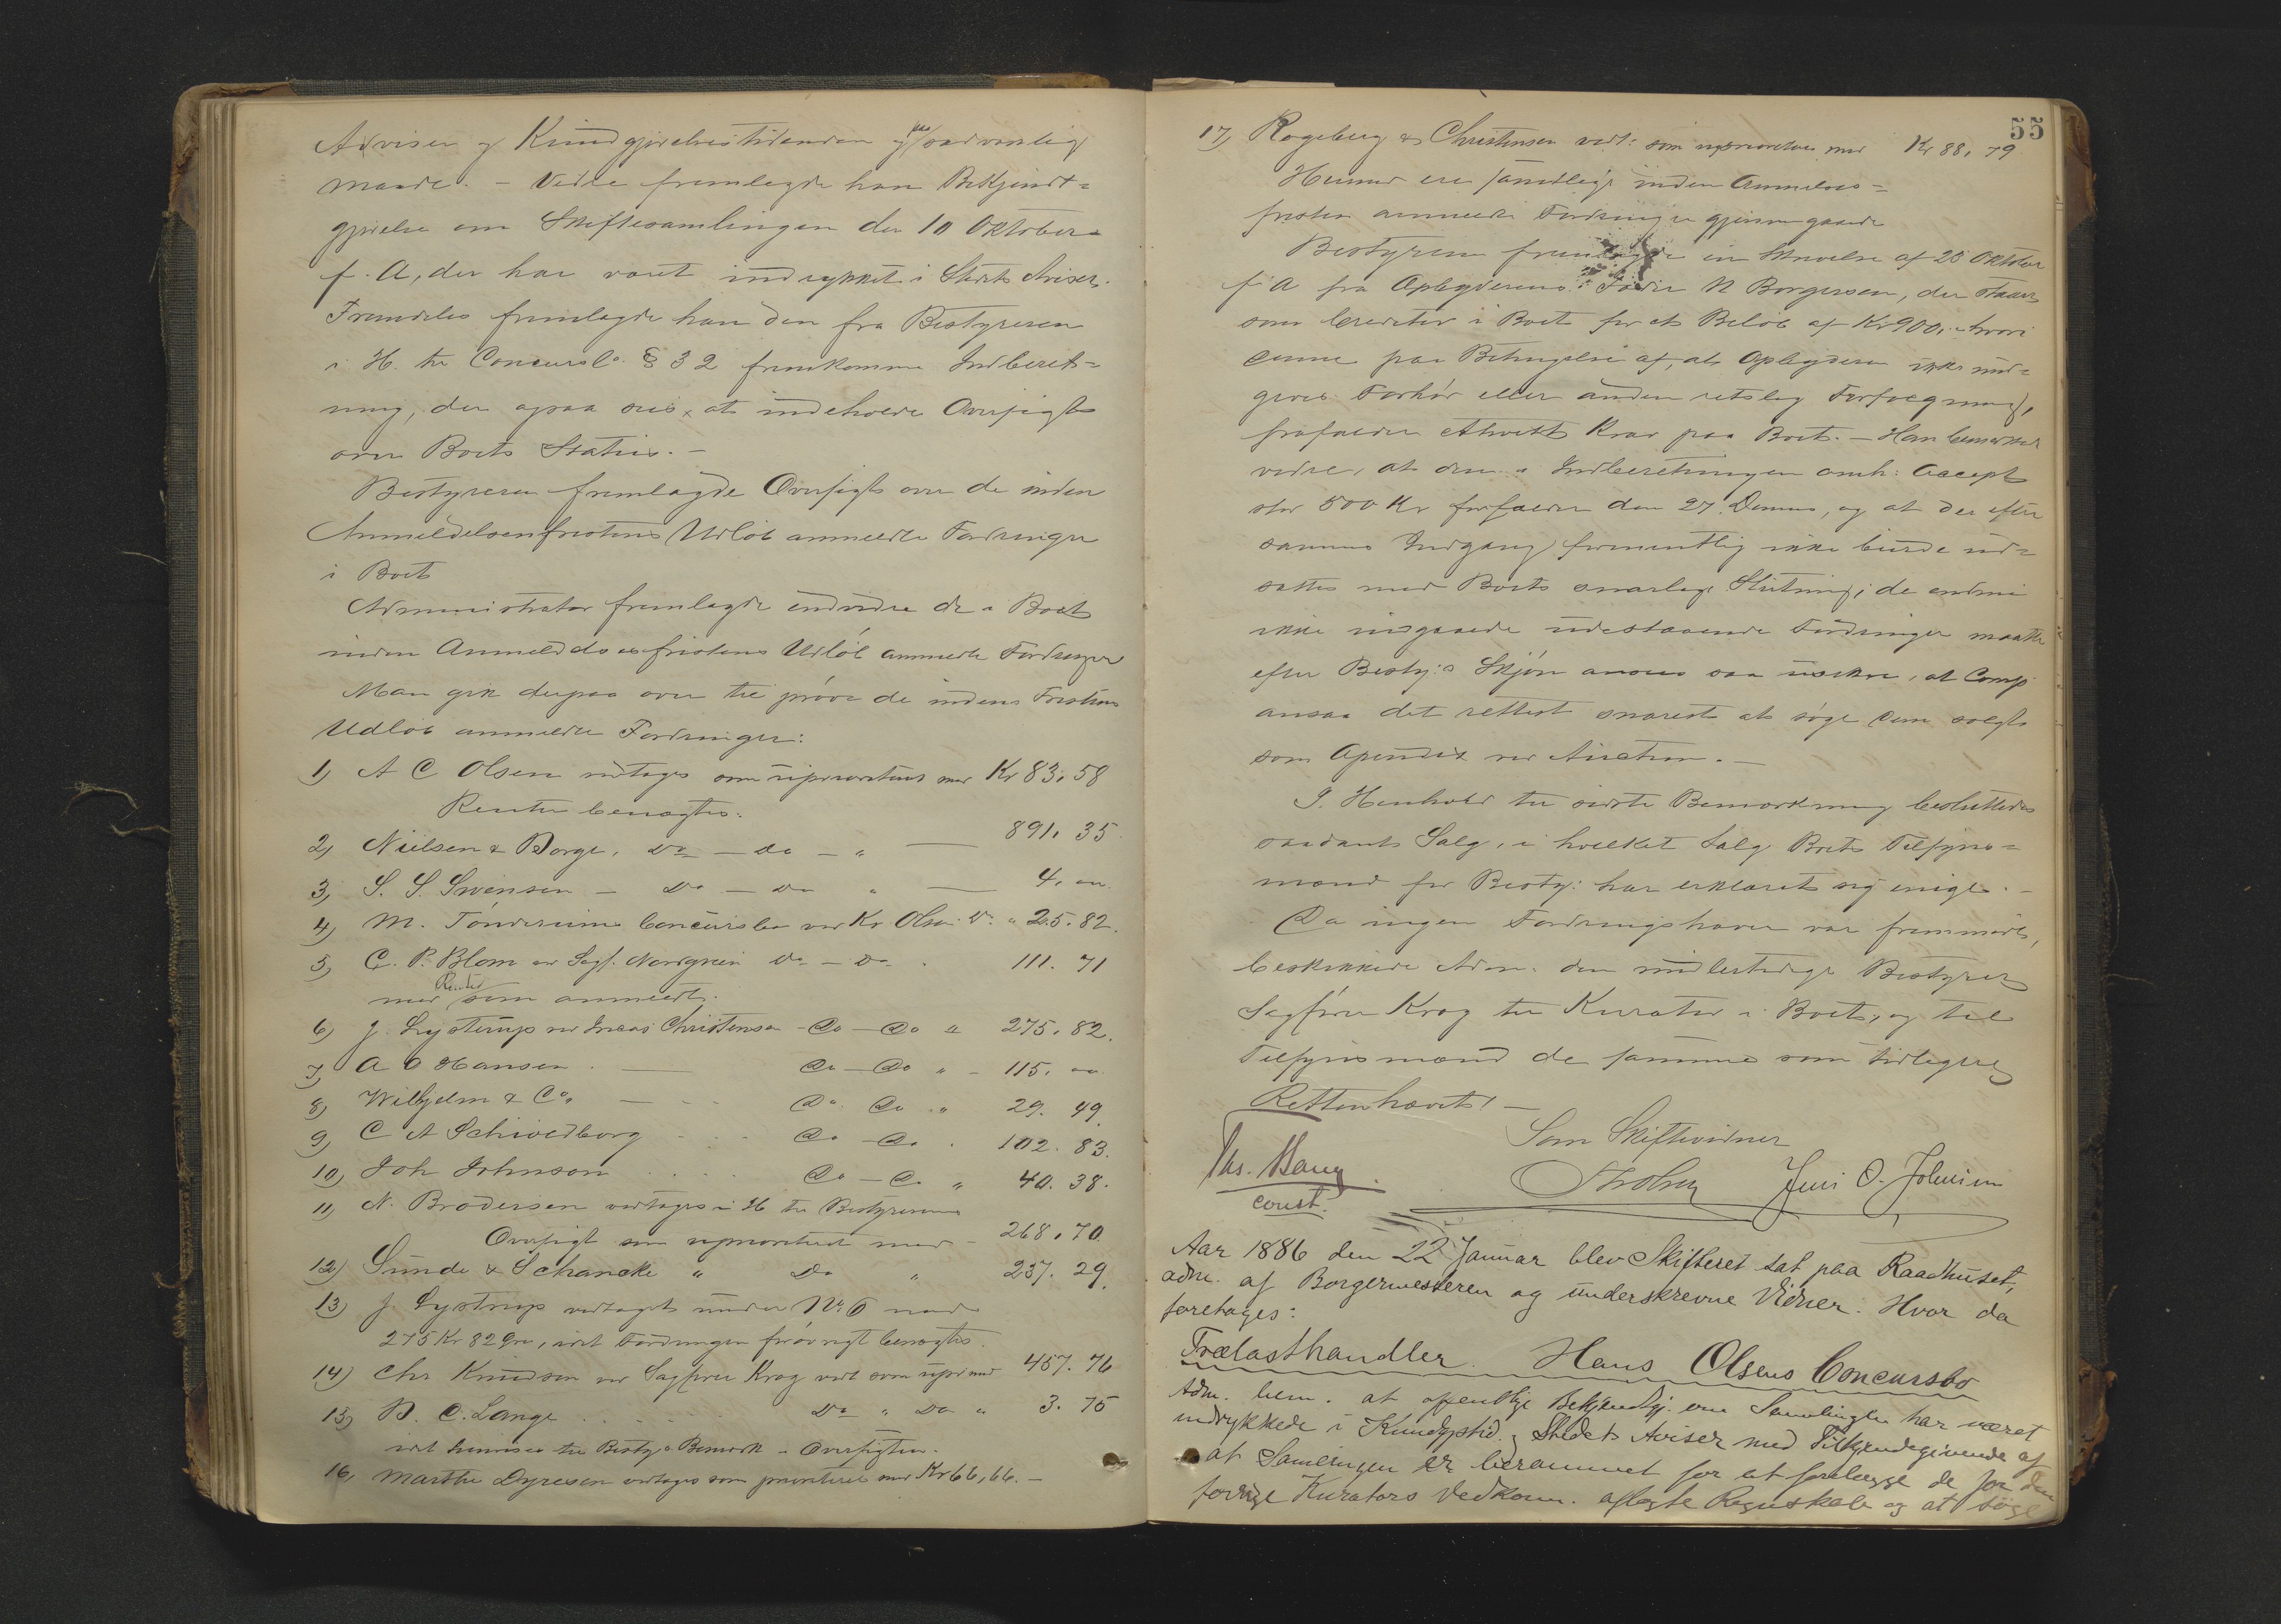 Adviser og Kundgjørelsestidenden og paa sædvanlig
Maade. – Videre fremlagde han Bekjendt=
gjørelse om Skiftesamlingen den 10 Oktober
f. A, der har været indrykket i Stedets Aviser.
Fremdeles fremlagde han den fra Bestyreren
i H. til Concursl. § 32 fremkomne Indberet=
ning, der ogsaa sees at indeholde Oversigt
over Boets Status. –
Bestyreren fremlagde Oversigt over de inden
Anmeldelsesfristens Udløb anmeldte Fordringer
i Boet
Administrator fremlagde endvidere de i Boet
inden Anmeldelsesfristens Udløb anmeldte Fordringer
Man gik derpaa over til at prøve de inden Fristens
Udløb anmeldte Fordringer:
1) A C Olsen vedtages som uprioriteret med Kr 83. 58
Renter benægtes.
2) Nielsen & Borge, Do – do – " 891. 35
3) S. S. Svensen – Do – Do " 4. 00
4) M. Tønderums Concursbo ved Kr Olsen Do " 25. 82.
5) C. P. Blom ved Sagf. Nordgreen Do – Do 111. 71
med Renter som anmeldt.
6) J. Lystrup ved Christensen – Do – Do " 275. 82.
7) A O Hansen Do – Do " – 115. 00
8) Wilhjelm & Co. Do Do " 29. 49.
9) C A Schivedborg Do – Do 102. 83.
10) Joh Johnson Do – Do " 40. 38.
11) N. Brodersen vedtages i H til Bestyrerens
Oversigt som uprioriteret med – 268. 70
12) Sunde & Schancke " Do " 237. 29.
13) J. Lystrup vedtaget under No 6 med
275 Kr 82 Øre, idet Fordringen forøvrigt benægtes.
14) Chr Knudsen ved Sagfører Krog vedt som upr med 457. 76
15) B. C. Lange Do " Do " 3. 75
idet henvises til Besty's Bemærk i Oversigten.
16, Marthe Dyresen vedtages som prioriteret med Kr 66, 66. –
55
17) Rogeberg & Christensen vedt: som uprioriteret med Kr 88. 79
Hermed ere samtlige inden Anmeldelses=
fristen anmeldte Fordringer gjennemgaaede
Bestyreren fremlagde en Skrivelse af 25 Oktober
f. A fra Opbyderens Fader N Borgersen, der staaer
som Creditor i Boet for et Beløb af Kr 900. – hvori
denne paa Betingelse af, at Opbyderen ikke und=
gives Forhør eller anden retslig Forfølgning,
frafalder ethvert Krav paa Boet. – Han bemærkede
videre, at den i Indberetningen omh: Accept
stor 500 Kr forfalder den 27. Dennes, og at der efter
sammes Indgang formentlig ikke burde ud=
sættes med Boets snarlige Slutning; de endnu
ikke indgaaede udestaaende Fordringer maatte
efter Besty:s Skjøn ansees saa usikre, at Comp
ansaa det rettest snarest at søge dem solgt
som Apendix ved Auction. –
I Henhold til sidste Bemærkning besluttedes
saadant Salg, i hvilket Salg Boets Tilsyns=
mænd for Besty: har erklæret sig enige. –
Da ingen Fordringshaver var fremmødt,
beskikkede Adm. den midlertidige Bestyrer
Sagfører Krog til Kurator i Boet, og til
Tilsynsmænd de samme som tidligere
Retten hævet! –
Som Skiftevidner
Ths. Bang
const.
Jens O. Johnsen
Aar 1886 den 22 Januar blev Skifteret sat paa Raadhuset,
adm. af Borgermesteren og underskrevne Vidner. Hvor da
foretages:
Trælasthandler Hans Olsens Concursbo
Adm. bem. at offentlige Bekjendtgj. om Samlingen har været
indrykkede i Kundgjstid. og Stedets Aviser med Tilkjendegivende af
at Samlingen er berammet for at forelægge de for den
forrige Kurators Vedkom. aflagte Regnskab og at søge